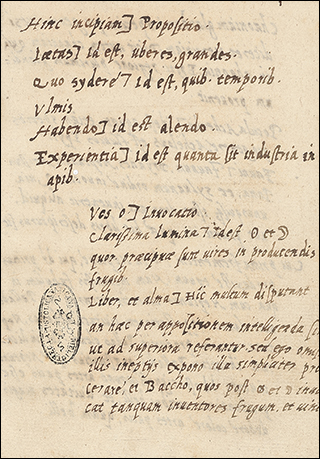 Hinc incipiam] Propositio.
Laetas] Id est, uberes, grandes.
Quo sydere'] Id est, quib. temporib.
Vlmis
Habendo] id est alendo
Experientia] id est quanta sit industria in
apib.
Vos o] Inuocatio
Clarissima lumina] Id est ☉ et ☽
quor praecipuae sunt uires in producendis
frugib.
Liber, et alma] Hîc multum disputant
an haec per appositionem intelligenda si
ue ad superiora referantur. seu ego omis
illis ineptijs expono illa simpliciter pro
cerare, et Baccho, quos post ☉ et ☽ inuo
cat tanquam inuentores frugum, et uini